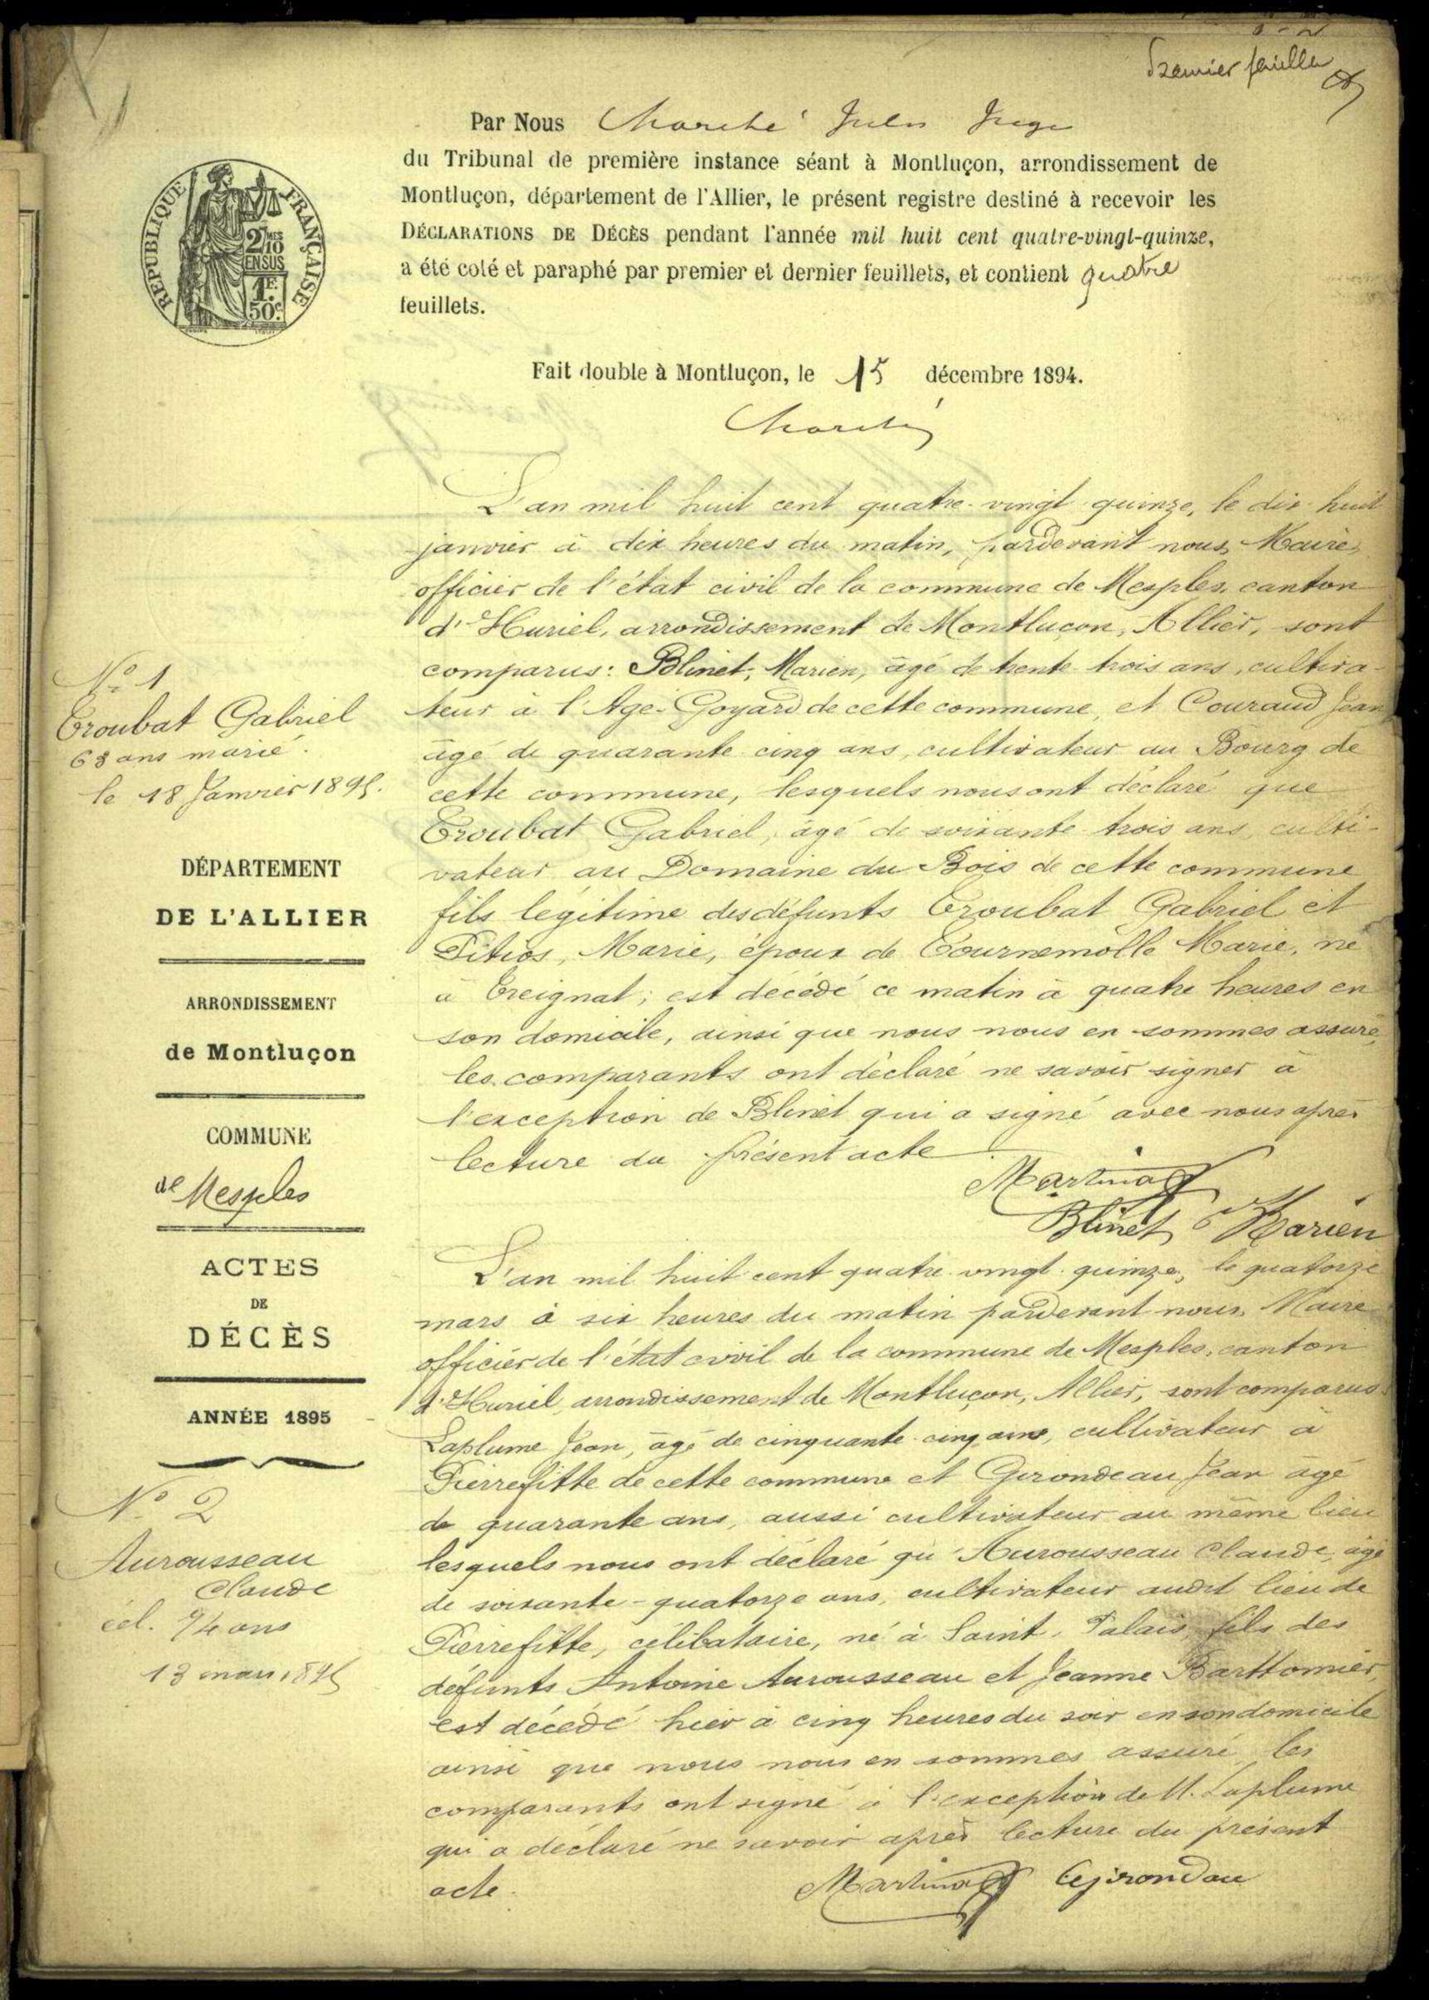 Premier feuillet
Par Nous Marché Jules Juge
du Tribunal de première instance séant à Montluçon, arrondissement de
Montluçon, département de l'Allier, le présent registre destiné à recevoir les
DÉCLARATIONS DE DÉCÈS pendant l'année mil huit cent quatre-vingt-quinze,
a été coté et paraphé par premier et dernier feuillets, et contient quatre
feuillets.
RÉPUBLIQUE FRANÇAISE
2 MES
10
EN SUS
1F.
50c.
Fait double à Montluçon, le 15 décembre 1894.
Marché
L'an mil huit cent quatre-vingt quinze, le dix huit
janvier à dix heures du matin, pardevant nous, Maire
officier de l'état civil de la commune de Mesples, canton
d'Huriel, arrondissement de Montluçon, Allier, sont
comparus: Blinet, Marien, âgé de trente trois ans, cultiva-
teur à l'Age-Goyard de cette commune, et Couraud Jean
âgé de quarante cinq ans, cultivateur au Bourg de
cette commune, lesquels nous ont déclaré que
Troubat Gabriel, âgé de soixante trois ans, culti-
vateur au Domaine du Bois de cette commune
fils légitime des défunts Troubat Gabriel et
Pitios, Marie, époux de Tournemolle Marie, né
à Treignat; est décédé ce matin à quatre heures en
son domicile, ainsi que nous nous en sommes assuré,
les comparants ont déclaré ne savoir signer à
l'exception de Blinet qui a signé avec nous après
lecture du présent acte
Blinet Marien
N° 1
Troubat Gabriel
63 ans marié.
le 18 Janvier 1895.
DÉPARTEMENT
DE L'ALLIER
ARRONDISSEMENT
de Montluçon
COMMUNE
de Mesples
ACTES
DE
DÉCÈS
ANNÉE 1895
N° 2
Aurousseau
Claude
cél. 74 ans
13 mars 1895
L'an mil huit cent quatre-vingt-quinze, le quatorze
mars à six heures du matin pardevant nous, Maire
officier de l'état civil de la commune de Mesples, canton
d'Huriel, arrondissement de Montluçon, Allier, sont comparus:
Laplume Jean, âgé de cinquante-cinq ans, cultivateur à
Pierrefitte de cette commune et Girondeau Jean âgé
de quarante ans, aussi cultivateur au même lieu
lesquels nous ont déclaré qu'Aurousseau Claude, âgé
de soixante-quatorze ans, cultivateur audit lieu de
Pierrefitte, célibataire, né à Saint-Palais, fils des
défunts Antoine Aurousseau et Jeanne Barthomier,
est décédé hier à cinq heures du soir en son domicile
ainsi que nous nous en sommes assuré, les
comparants ont signé à l'exception de M. Laplume
qui a déclaré ne savoir après lecture du présent
acte.